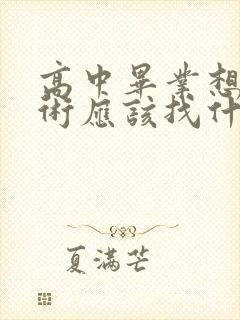 高中畢業想
術應該找什
夏滿芒